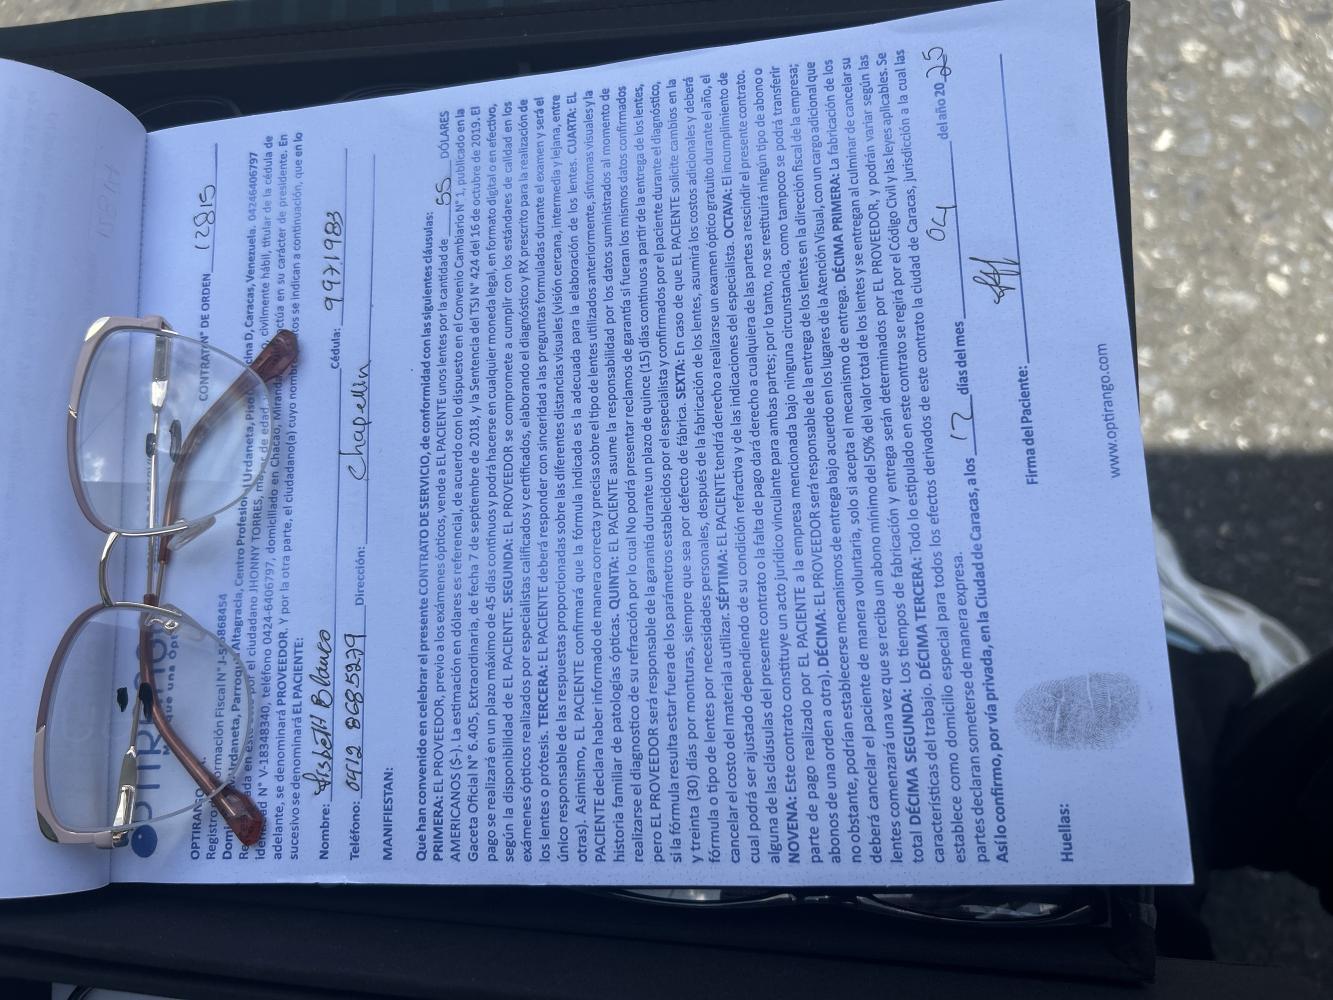 CONTRATO N° DE ORDEN 12815
Registro
ormación Fiscal N° J-
8684454
Urdaneta, Parroqu
Altagracia, Centro Profesional Urdaneta, Piso
cina D, Caracas, Venezuela. 04246406797
r el ciudadano JHONNY TORRES, ma
de edad,
, civilmente hábil, titular de la cédula de
N° V-18348340, teléfono 0424-6406797, domiciliado en Chacao, Miranda
ctúa en su carácter de presidente. En
adelante, se denominará PROVEEDOR. Y por la otra parte, el ciudadano(a) cuyo nomb
os se indican a continuación, que en lo
sucesivo se denominará EL PACIENTE:
Nombre: Lisbeth Blanco Cédula: 9971983
Teléfono: 0412 8685279 Dirección: Chapellin
MANIFIESTAN:
Que han convenido en celebrar el presente CONTRATO DE SERVICIO, de conformidad con las siguientes cláusulas:
PRIMERA: EL PROVEEDOR, previo a los exámenes ópticos, vende a EL PACIENTE unos lentes por la cantidad de 55 DÓLARES
AMERICANOS ($-). La estimación en dólares es referencial, de acuerdo con lo dispuesto en el Convenio Cambiario N° 1, publicado en la
Gaceta Oficial N° 6.405, Extraordinaria, de fecha 7 de septiembre de 2018, y la Sentencia del TSJ N° 424 del 16 de octubre de 2019. El
pago se realizará en un plazo máximo de 45 días continuos y podrá hacerse en cualquier moneda legal, en formato digital o en efectivo,
según la disponibilidad de EL PACIENTE. SEGUNDA: EL PROVEEDOR se compromete a cumplir con los estándares de calidad en los
exámenes ópticos realizados por especialistas calificados y certificados, elaborando el diagnóstico y RX prescrito para la realización de
los lentes o prótesis. TERCERA: EL PACIENTE deberá responder con sinceridad a las preguntas formuladas durante el examen y será el
único responsable de las respuestas proporcionadas sobre las diferentes distancias visuales (visión cercana, intermedia y lejana, entre
otras). Asimismo, EL PACIENTE confirmará que la fórmula indicada es la adecuada para la elaboración de los lentes. CUARTA: EL
PACIENTE declara haber informado de manera correcta y precisa sobre el tipo de lentes utilizados anteriormente, síntomas visuales y la
historia familiar de patologías ópticas. QUINTA: EL PACIENTE asume la responsabilidad por los datos suministrados al momento de
realizarse el diagnostico de su refracción por lo cual No podrá presentar reclamos de garantía si fueran los mismos datos confirmados
pero EL PROVEEDOR será responsable de la garantía durante un plazo de quince (15) días continuos a partir de la entrega de los lentes,
y treinta (30) días por monturas, siempre que sea por defecto de fábrica. SEXTA: En caso de que EL PACIENTE solicite cambios en la
si la fórmula resulta estar fuera de los parámetros establecidos por el especialista y confirmados por el paciente durante el diagnóstico,
fórmula o tipo de lentes por necesidades personales, después de la fabricación de los lentes, asumirá los costos adicionales y deberá
cancelar el costo del material a utilizar. SÉPTIMA: EL PACIENTE tendrá derecho a realizarse un examen óptico gratuito durante el año, el
cual podrá ser ajustado dependiendo de su condición refractiva y de las indicaciones del especialista. OCTAVA: El incumplimiento de
alguna de las cláusulas del presente contrato o la falta de pago dará derecho a cualquiera de las partes a rescindir el presente contrato.
NOVENA: Este contrato constituye un acto jurídico vinculante para ambas partes; por lo tanto, no se restituirá ningún tipo de abono o
parte de pago realizado por EL PACIENTE a la empresa mencionada bajo ninguna circunstancia, como tampoco se podrá transferir
abonos de una orden a otra). DÉCIMA: EL PROVEEDOR será responsable de la entrega de los lentes en la dirección fiscal de la empresa;
no obstante, podrían establecerse mecanismos de entrega bajo acuerdo en los lugares de la Atención Visual, con un cargo adicional que
deberá cancelar el paciente de manera voluntaria, solo si acepta el mecanismo de entrega. DÉCIMA PRIMERA: La fabricación de los
lentes comenzará una vez que se reciba un abono mínimo del 50% del valor total de los lentes y se entregan al culminar de cancelar su
total DÉCIMA SEGUNDA: Los tiempos de fabricación y entrega serán determinados por EL PROVEEDOR, y podrán variar según las
características del trabajo. DÉCIMA TERCERA: Todo lo estipulado en este contrato se regirá por el Código Civil y las leyes aplicables. Se
establece como domicilio especial para todos los efectos derivados de este contrato la ciudad de Caracas, jurisdicción a la cual las
partes declaran someterse de manera expresa.
Así lo confirmo, por vía privada, en la Ciudad de Caracas, a los 12 días del mes 04 del año 2025
Firma del Paciente:
Huellas:
www.optirango.com